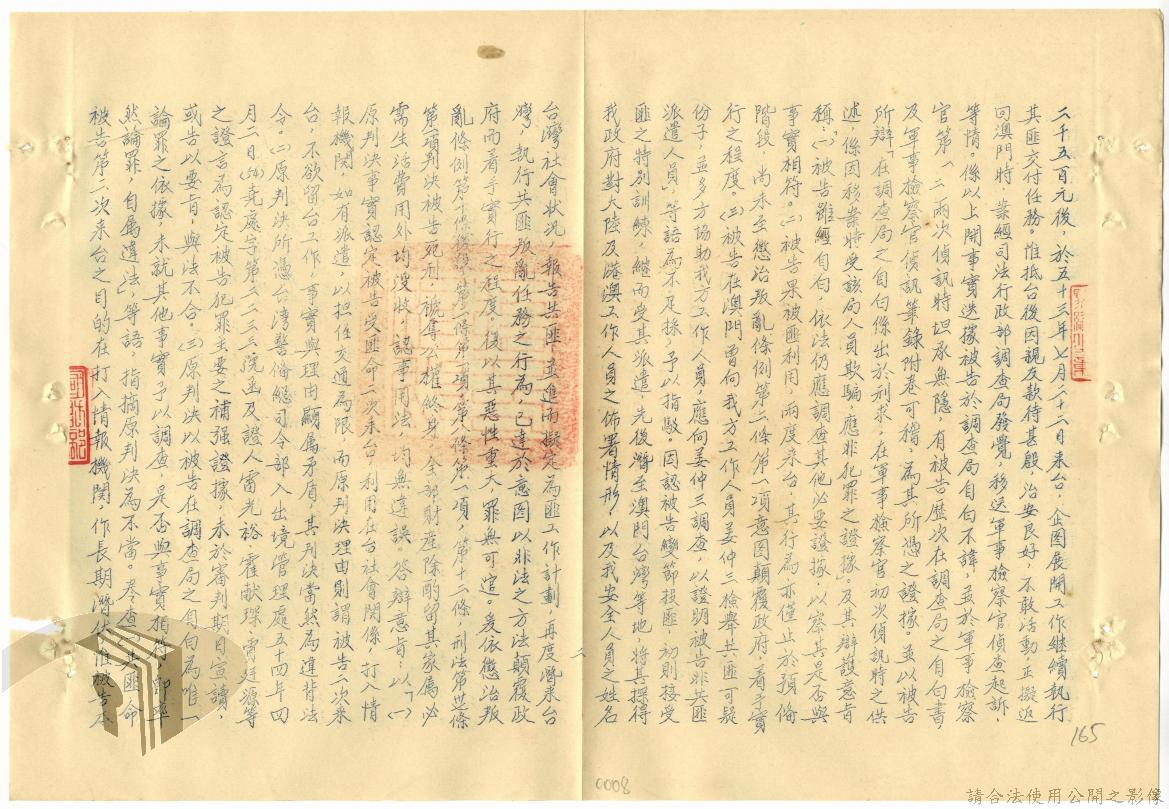 二千五百元後，於五十三年七月二十二日来台，企图展開工作继續执行
其匪交付任務。惟抵台後因親友款待甚殷，治安良好，不敢活動，正擬返
回澳門時，業經司法行政部調查局發覺，移送軍事檢察官偵查起訴，
等情。係以上開事實迭據被告於調查局自白不諱，並於軍事檢察
官第一、二兩次偵訊時坦承無隱，有被告歷次在調查局之自白書，
及軍事檢察官偵訊筆錄附卷可稽，為其所憑之證據。並以被告
所辯「在調查局之自白係出於刑求，在軍事檢察官初次偵訊時之供
述，係因移案時受該局人員欺騙，應非犯罪之證據」。及其辯護意旨
稱：㈠被告雖經自白，依法仍應調查其他必要證據，以察其是否與
事實相符。㈡被告果被匪利用，兩度来台，其行為亦僅止於預備
階段，尚未至懲治叛亂條例第二條第一項意图顛覆政府，而着手實
行之程度。㈢被告在澳門曾向我方工作人員姜仲三檢舉共匪可疑
份子，並多方協助我方工作人員，應向姜仲三調查，以證明被告非共匪
派遣人員」等語為不足採，予以指駁。因認被告變節投匪，初則接受
匪之特別訓練，継而受其派遣，先後潛至澳門台灣等地，將其探得
我政府對大陸及港澳工作人員之佈署情形，以及我安全人員之姓名
台灣社會狀况，報告共匪，並進而擬定為匪工作計劃，再度潛来台
灣，執行共匪叛亂任務之行為，已達於意图以非法之方法顛覆政
府而着手實行之程度。復以其惡性重大，罪無可逭。爰依懲治叛
亂條例第十條後段，第二條第一項，第八條第一項，第十二條，刑法第卅七條
第一項判決被告死刑，褫奪公權終身，全部財產除酌留其家屬必
需生活費用外均没收，認事用法，均無違誤。答辯意旨：以「㈠
原判決事實認定被告受匪命二次来台，利用在台社會関係，打入情
報機関，如有派遣，以担任交通為限，而原判決理由則謂被告二次来
台，不欲留台工作，事實與理由顯属矛盾，其判決當然為違背法
令。㈡原判決所憑台湾警備総司令部入出境管理處五十四年四
月二日(54)堯處字第三二三三號函及證人雷光裕、霍献琛、雷廷源等
之證言為認定被告犯罪主要之補强證據，未於審判期日宣讀，
或告以要旨，與法不合。㈢原判決以被告在調查局之自白為唯一
論罪之依據，未就其他事實予以調查，是否與事實相符，即率
然論罪，自属違法」，等語，指摘原判決為不當。卷查㈠共匪命
被告第二次来台之目的在打入情報機関，作長期潛伏，惟被告不
二
國防部
165
0008
請合法使用公開之影像